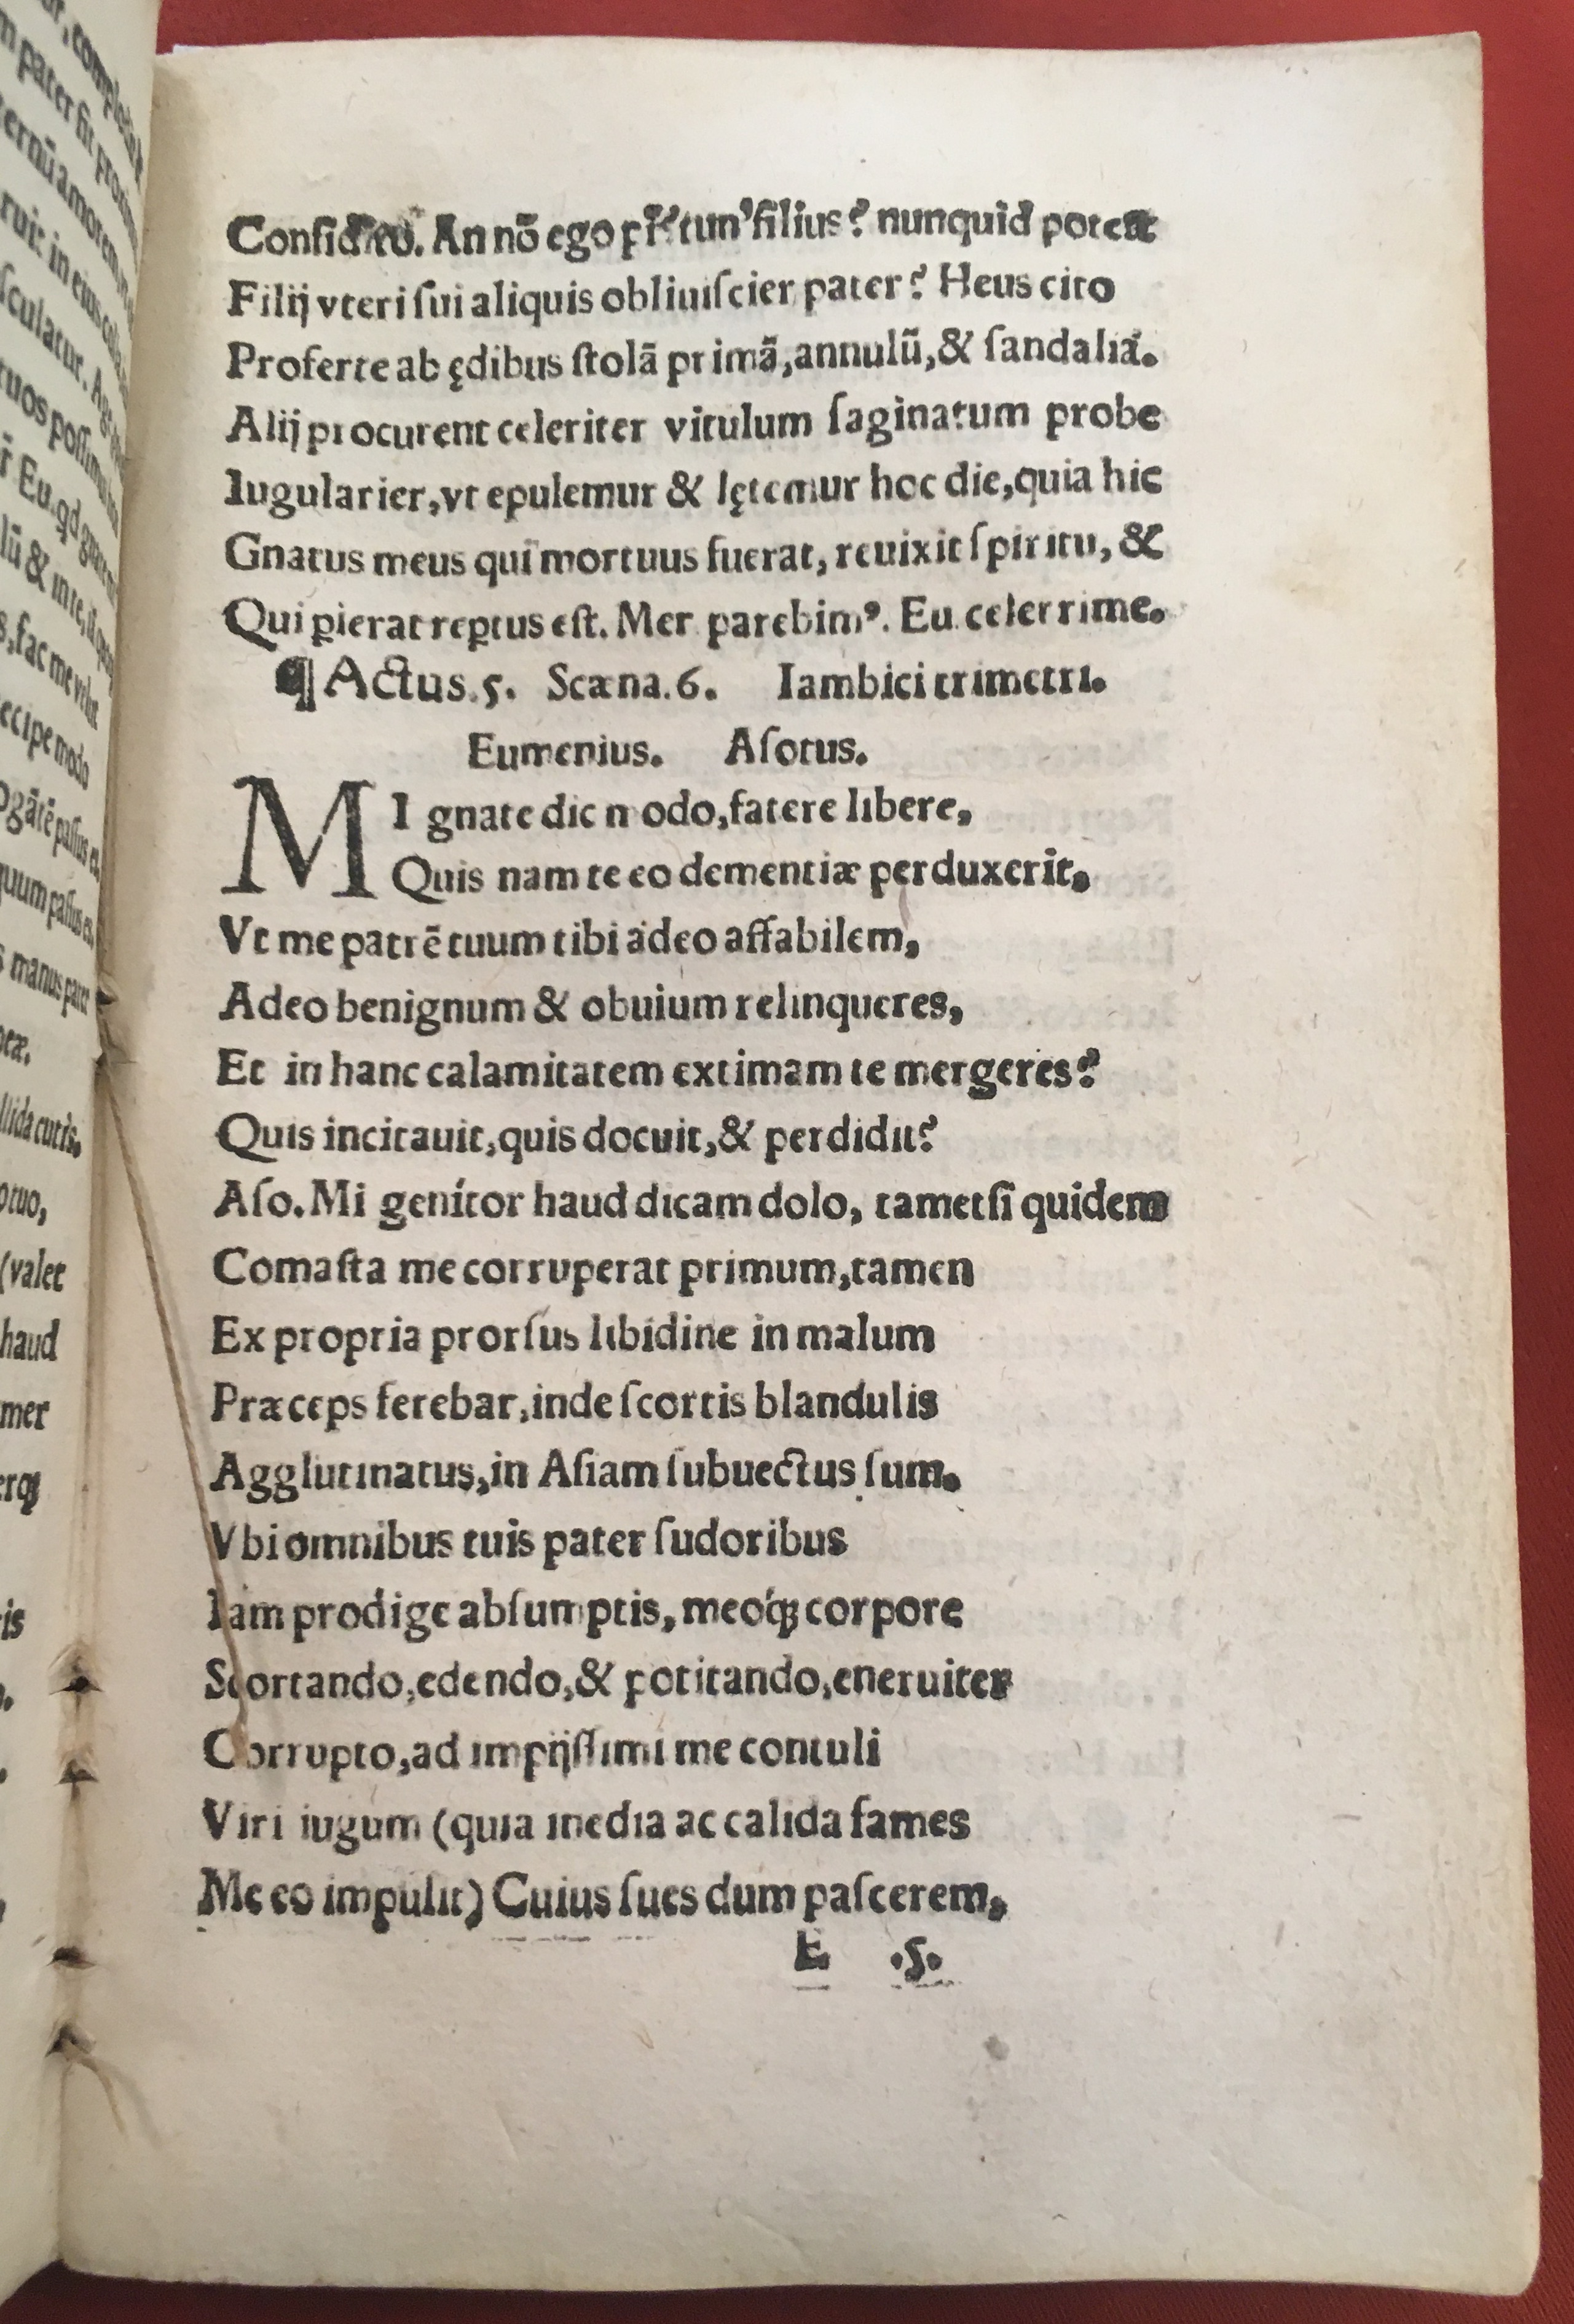 ernū amorem
ruit in eius
sculatur.
tuos possimus
r̄ Eu. qd
lū & inte,
s, fac me velut
ecipe modo
ogātē passus es.
quum passus es.
s manus pater
llida cutis.
otuo,
(valet
haud
mer
erqꝫ
is
Considito. An nō ego pr̄ tun᾽ filius? nunquid potest
Filij vteri ſui aliquis obliuiſcier pater? Heus cito
Proferte ab ędibus ſtolā primā, annulū, & ſandalia.
Alij procurent celeriter vitulum ſaginatum probe
Iugularier, vt epulemur & lętemur hoc die, quia hic
Gnatus meus qui mortuus fuerat, reuixit ſpiritu, &
Qui ꝑierat reꝑtus eſt. Mer parebimꝰ. Eu. celerrime.
¶ Actus. 5. Scæna. 6. Iambici trimetri.
Eumenius. Aſotus.
MI gnate dic modo, fatere libere,
Quis nam te eo dementiæ perduxerit,
Vt me patrē tuum tibi adeo affabilem,
Adeo benignum & obuium relinqueres,
Et in hanc calamitatem extimam te mergeres?
Quis incitauit, quis docuit, & perdidit?
Aſo. Mi genitor haud dicam dolo, tametſi quidem
Comaſta me corruperat primum, tamen
Ex propria prorſus libidine in malum
Præceps ferebar, inde ſcortis blandulis
Agglutinatus, in Aſiam ſubuectus ſum.
Vbi omnibus tuis pater ſudoribus
Iam prodige abſumptis, meoqꝫ corpore
Scortando, edendo, & potitando, eneruiter
Corrupto, ad impijſſimi me contuli
Viri iugum (quia inedia ac calida fames
Me eo impulit) Cuius ſues dum paſcerem,
E .5.